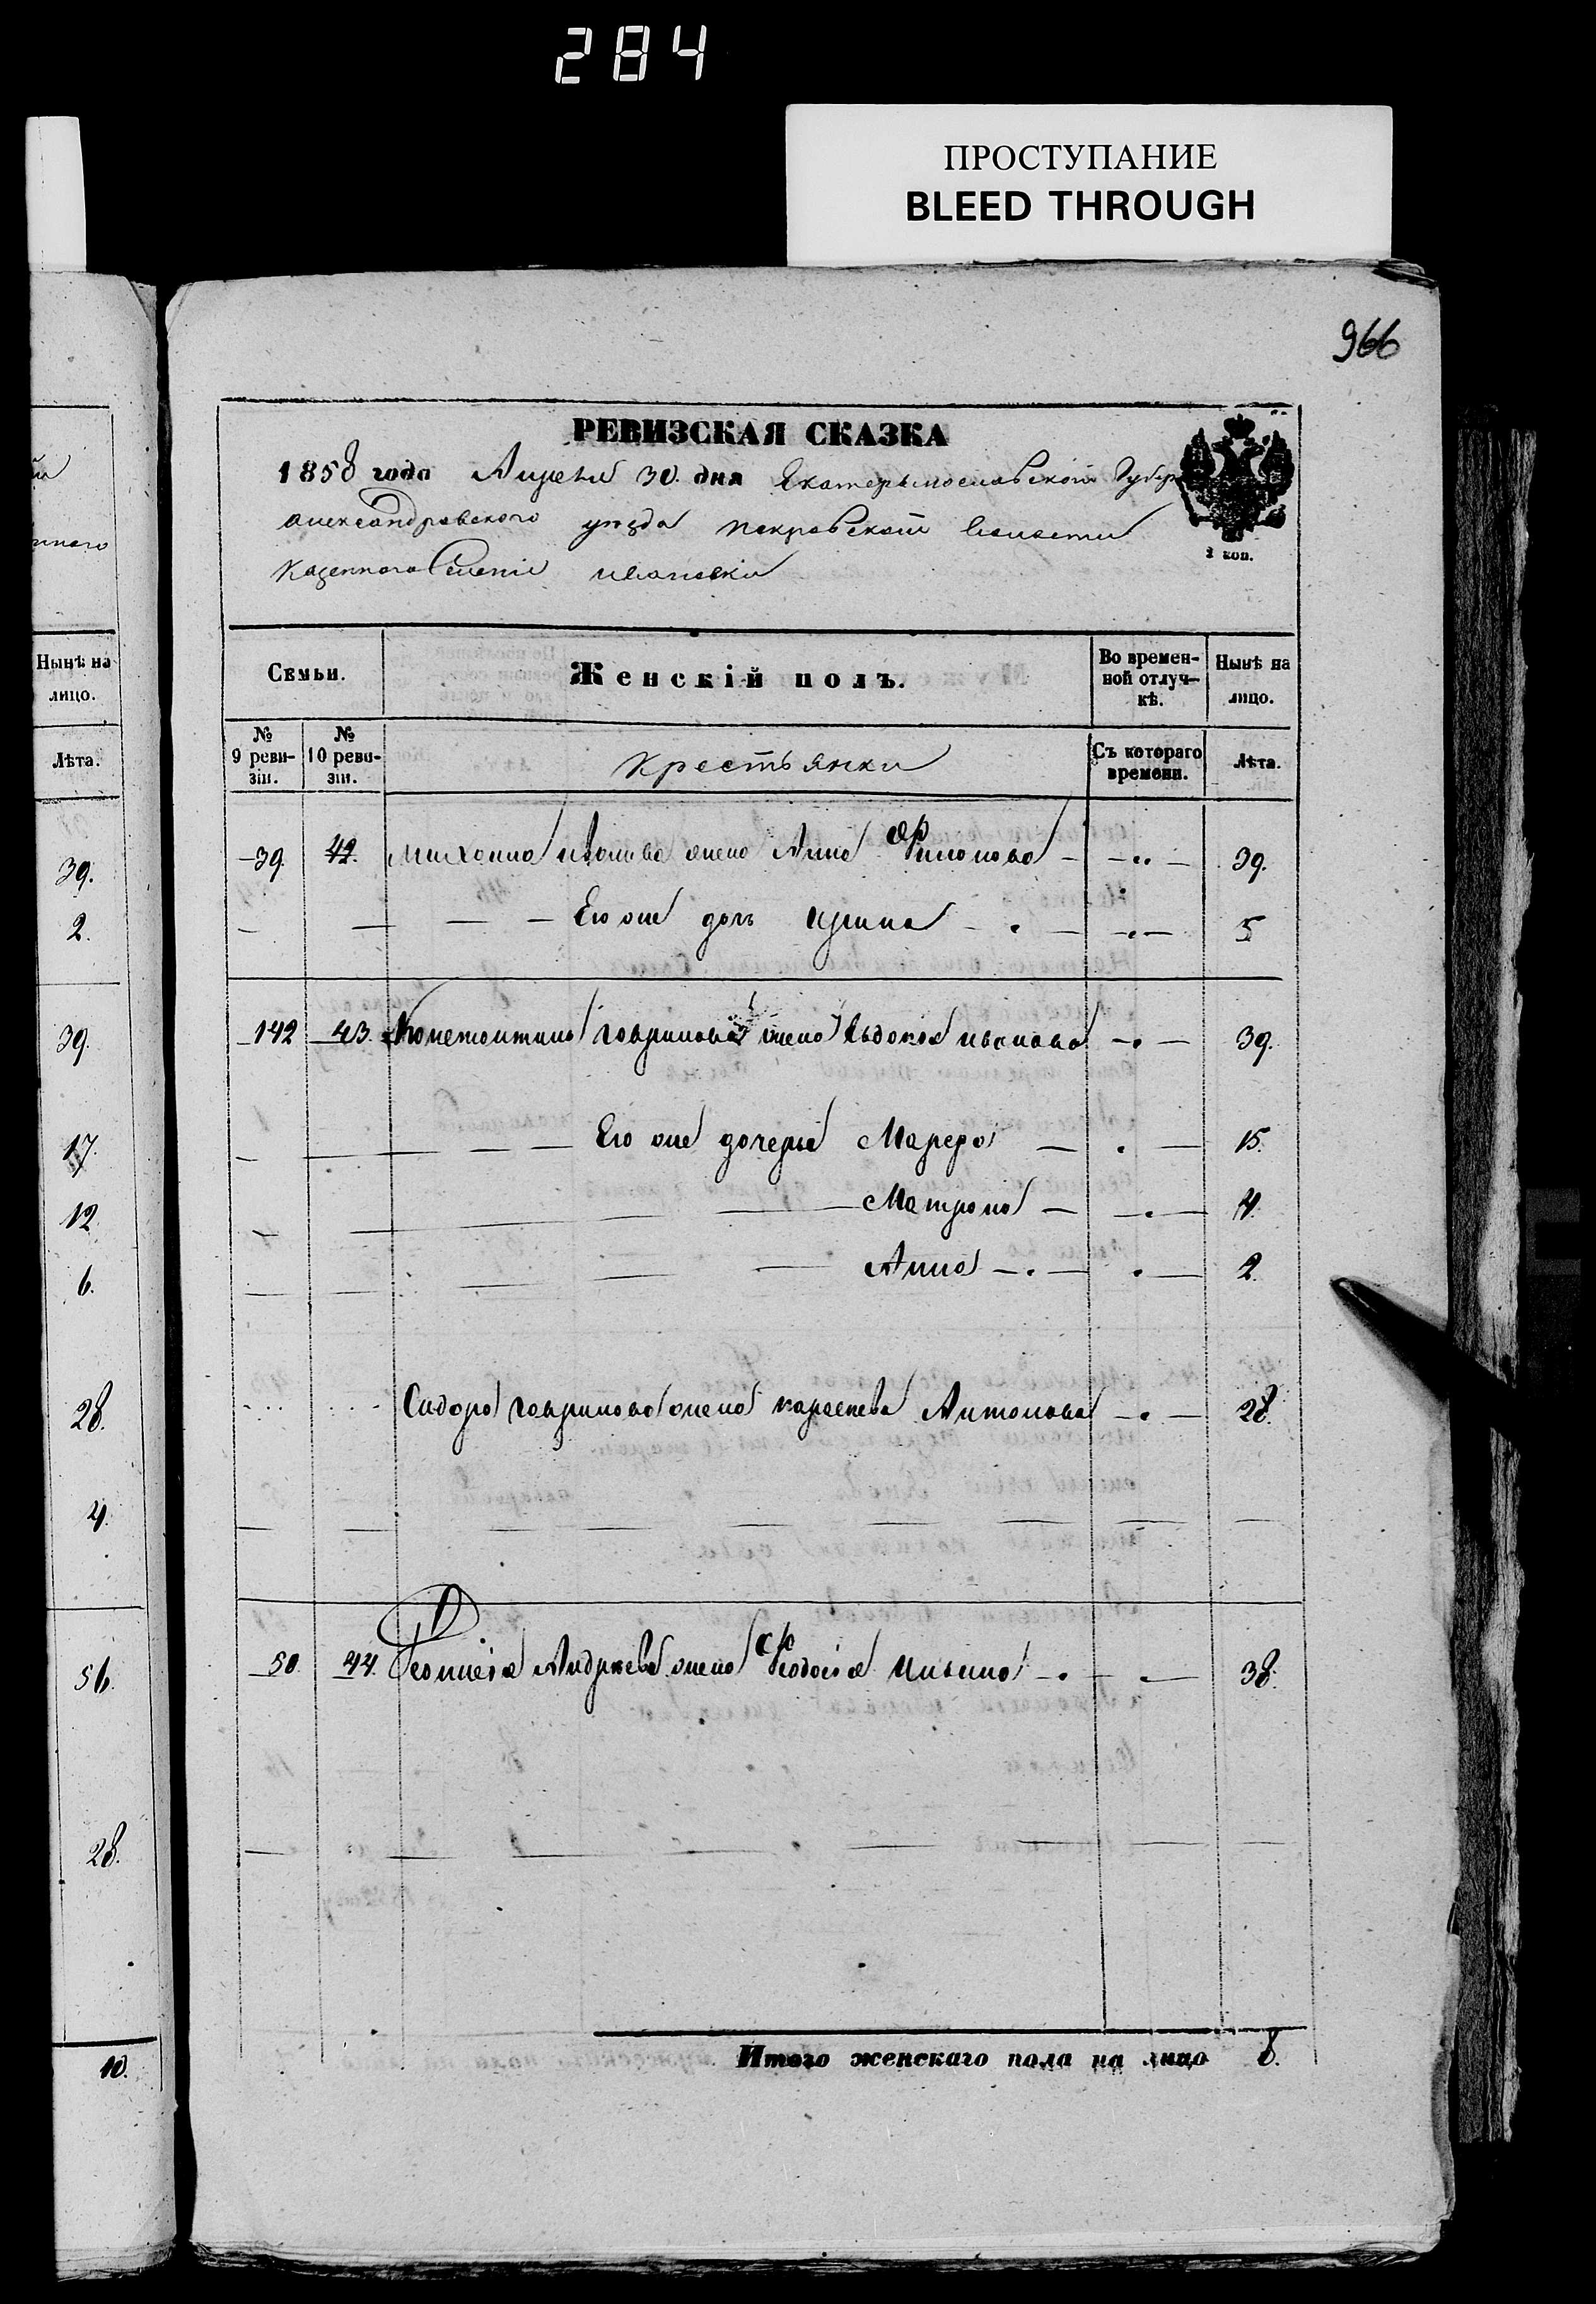 284
ПРОСТУПАНИЕ
BLEED THROUGH
966
РЕВИЗСКАЯ СКАЗКА
1858 года Апреля 30. дня Екатеринославской Губер
Александровского уезда Покровской волости
Казенного Селенія Ивановки
1 коп.
Нынѣ на лицо.
Лѣта.
39.
2.
39.
17.
12.
6.
28.
4.
56.
28.
10.
Семьи. Женскій полъ. Во временной отлучкѣ. Нынѣ на лицо.
№ 9 ревизіи. № 10 ревизіи. Крестьянки Съ котораго времени. Лѣта.
39. 42. Михаила Иванова жена Анна Филонова 39.
Его же дочь Ирина 5
142 43. Константина Гаврилова жена Евдокия Иванова 39.
Его же дочери Марфа 15.
Матрона 4.
Анна 2.
Сидора Гаврилова жена Антонова 28.
50. 44. Андреева жена Феодосія Ильина 38.
Итого женскаго пола на лицо 8.